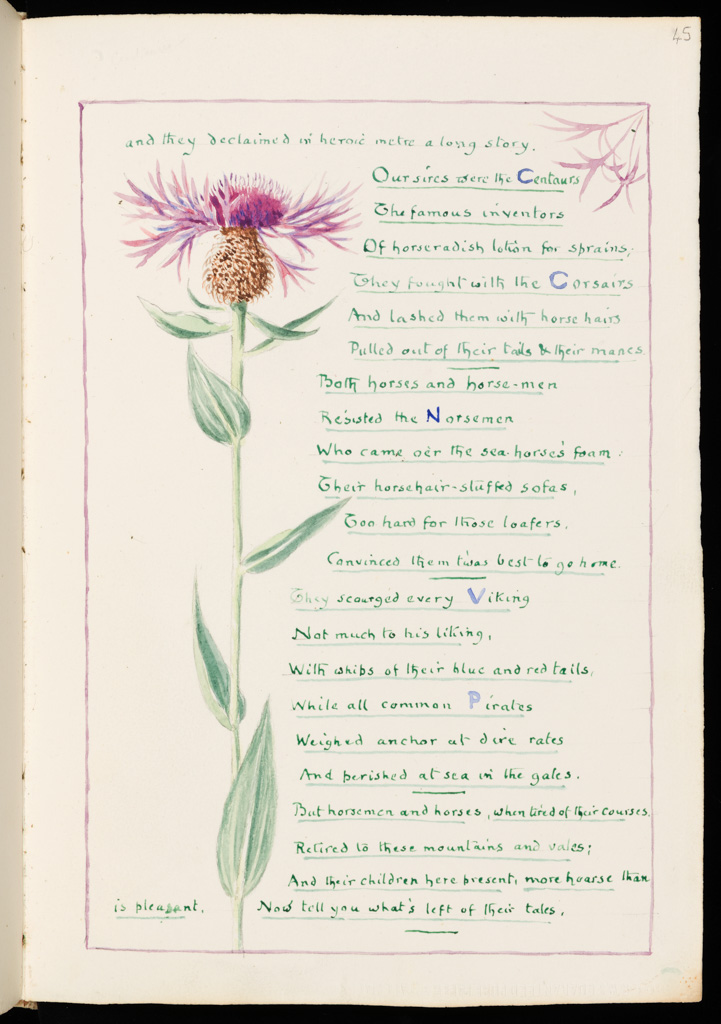 45
and they declaimed in heroic metre a long story.
Our sires were the Centaurs
The famous inventors
Of horseradish lotion for sprains;
They fought with the Corsairs
And lashed them with horse hairs
Pulled out of their tails & their manes.
Both horses and horse-men
Resisted the Norsemen
Who came o'er the sea-horses' foam:
Their horsehair-stuffed sofas,
Too hard for those loafers,
Convinced them t'was best to go home.
They scourged every Viking
Not much to his liking,
With whips of their blue and red tails,
While all common Pirates
Weighed anchor at dire rates
And perished at sea in the gales.
But horsemen and horses, when tired of their courses,
Retired to these mountains and vales;
And their children here present, more hoarse than
is pleasant, Now tell you what's left of their tales.